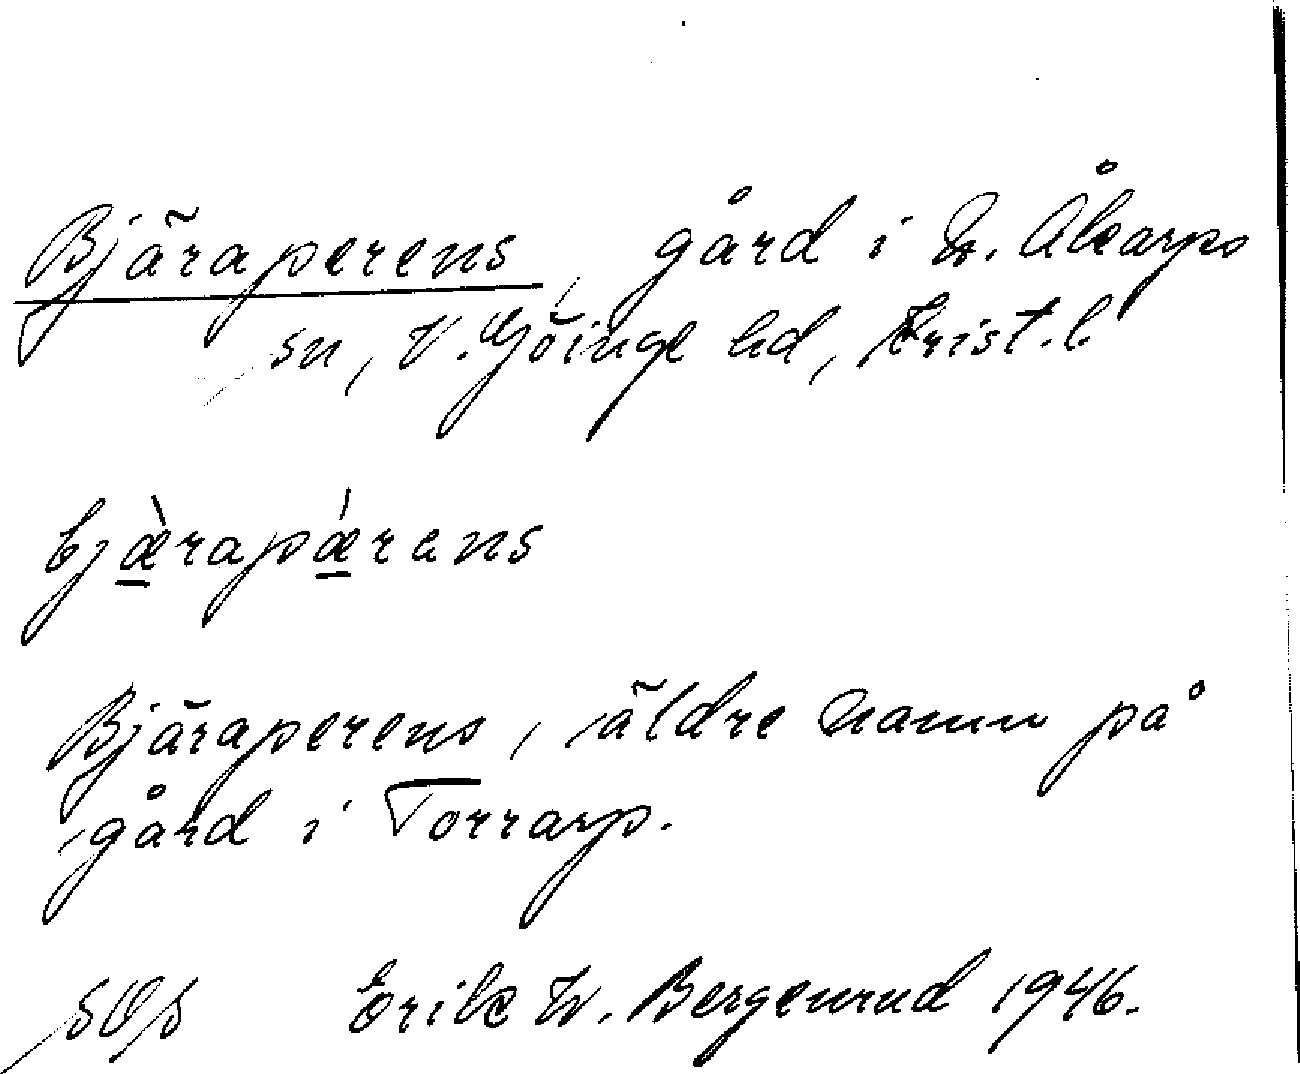 Bjäraperens, gård i N. Åkarps
sn, V. Göinge hd, Krist. l.
bjæ̱̀rapǽ̱rens
Bjäraperens, äldre namn på
gård i Torrarp.
SOS Erik W. Bergenrud 1946.